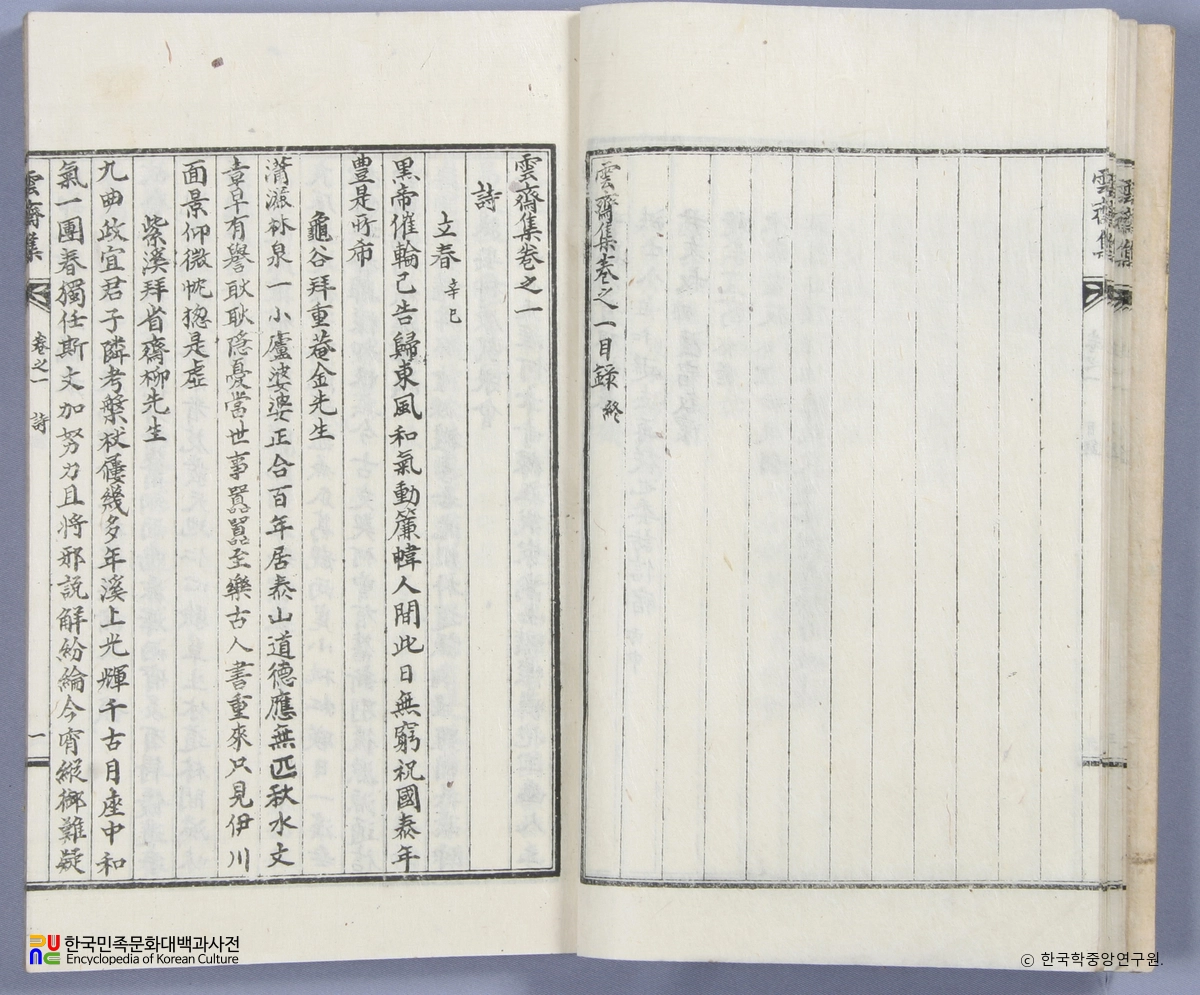 雲齋集
雲齋集卷之一目錄 終
雲齋集卷之一
詩
立春 辛巳
黑帝催輪已告歸東風和氣動簾幃人間此日無窮祝國泰年
豊是所希
龜谷拜重菴金先生
瀟㵝林泉一小廬婆娑正合百年居泰山道德應無匹秋水文
章早有譽耿耿隱憂當世事囂囂至樂古人書重來只見伊川
面景仰微忱摠是虛
紫溪拜省齋柳先生
九曲政宜君子隣考槃狀優幾多年溪上光輝千古月座中和
氣一團春獨任斯文加努力且將邪說解紛綸今宵縱鄕難疑
雲齋集 卷之一 詩 一
한국민족문화대백과사전
Encyclopedia of Korean Culture
ⓒ 한국학중앙연구원.